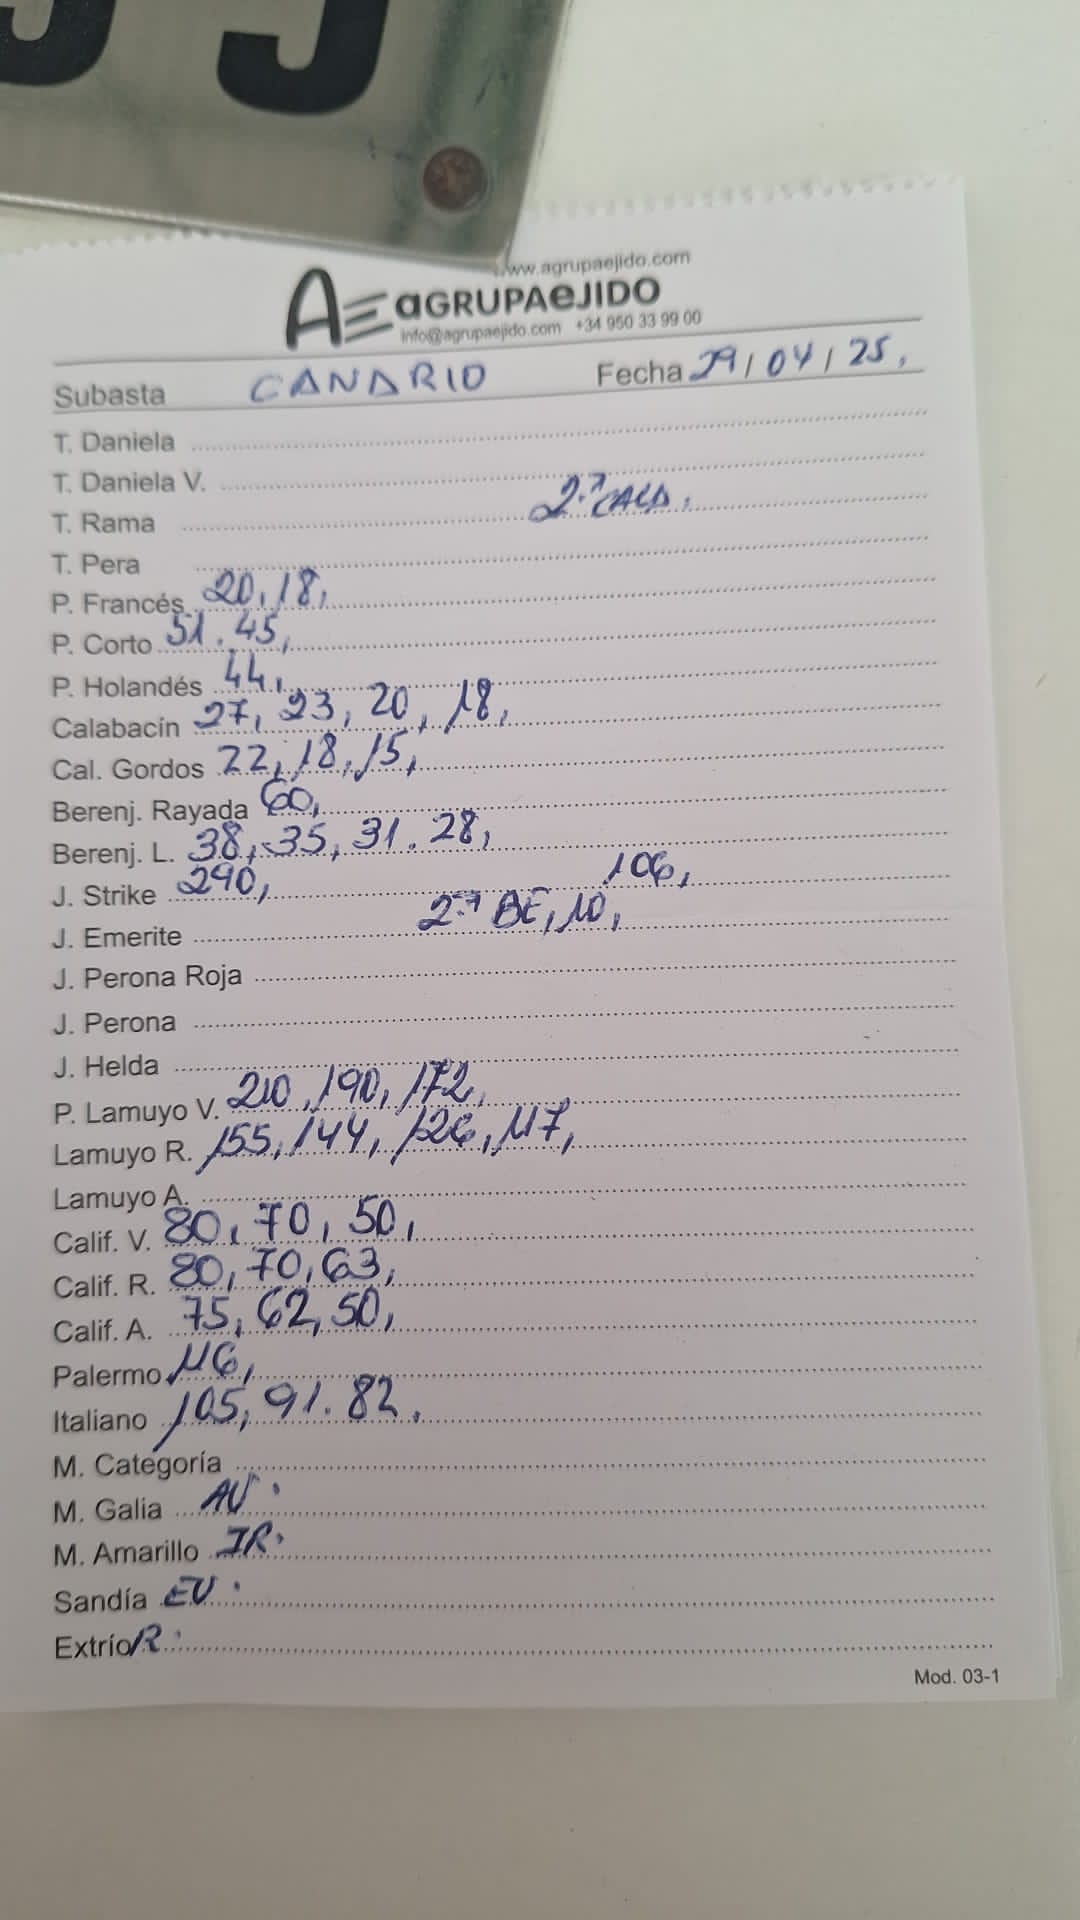 www.agrupaejido.com
AE aGRUPAeJIDO
info@agrupaejido.com +34 950 33 99 00
Subasta CANARIO Fecha 29/04/25,
T. Daniela
T. Daniela V.
T. Rama 2.ª CALA.
T. Pera
P. Francés 20, 18,
P. Corto 51. 45,
P. Holandés 44,
Calabacín 27, 23, 20, 18,
Cal. Gordos 22, 18, 15,
Berenj. Rayada 60,
Berenj. L. 38, 35, 31. 28,
J. Strike 290, 106,
J. Emerite 2.ª BE, 10,
J. Perona Roja
J. Perona
J. Helda
P. Lamuyo V. 210, 190, 172,
Lamuyo R. 155, 144, 126, 117,
Lamuyo A.
Calif. V. 80, 70, 50,
Calif. R. 80, 70, 63,
Calif. A. 75, 62, 50,
Palermo 116,
Italiano 105, 91. 82.
M. Categoría
M. Galia AU.
M. Amarillo IR.
Sandía EU.
Extrío R.
Mod. 03-1